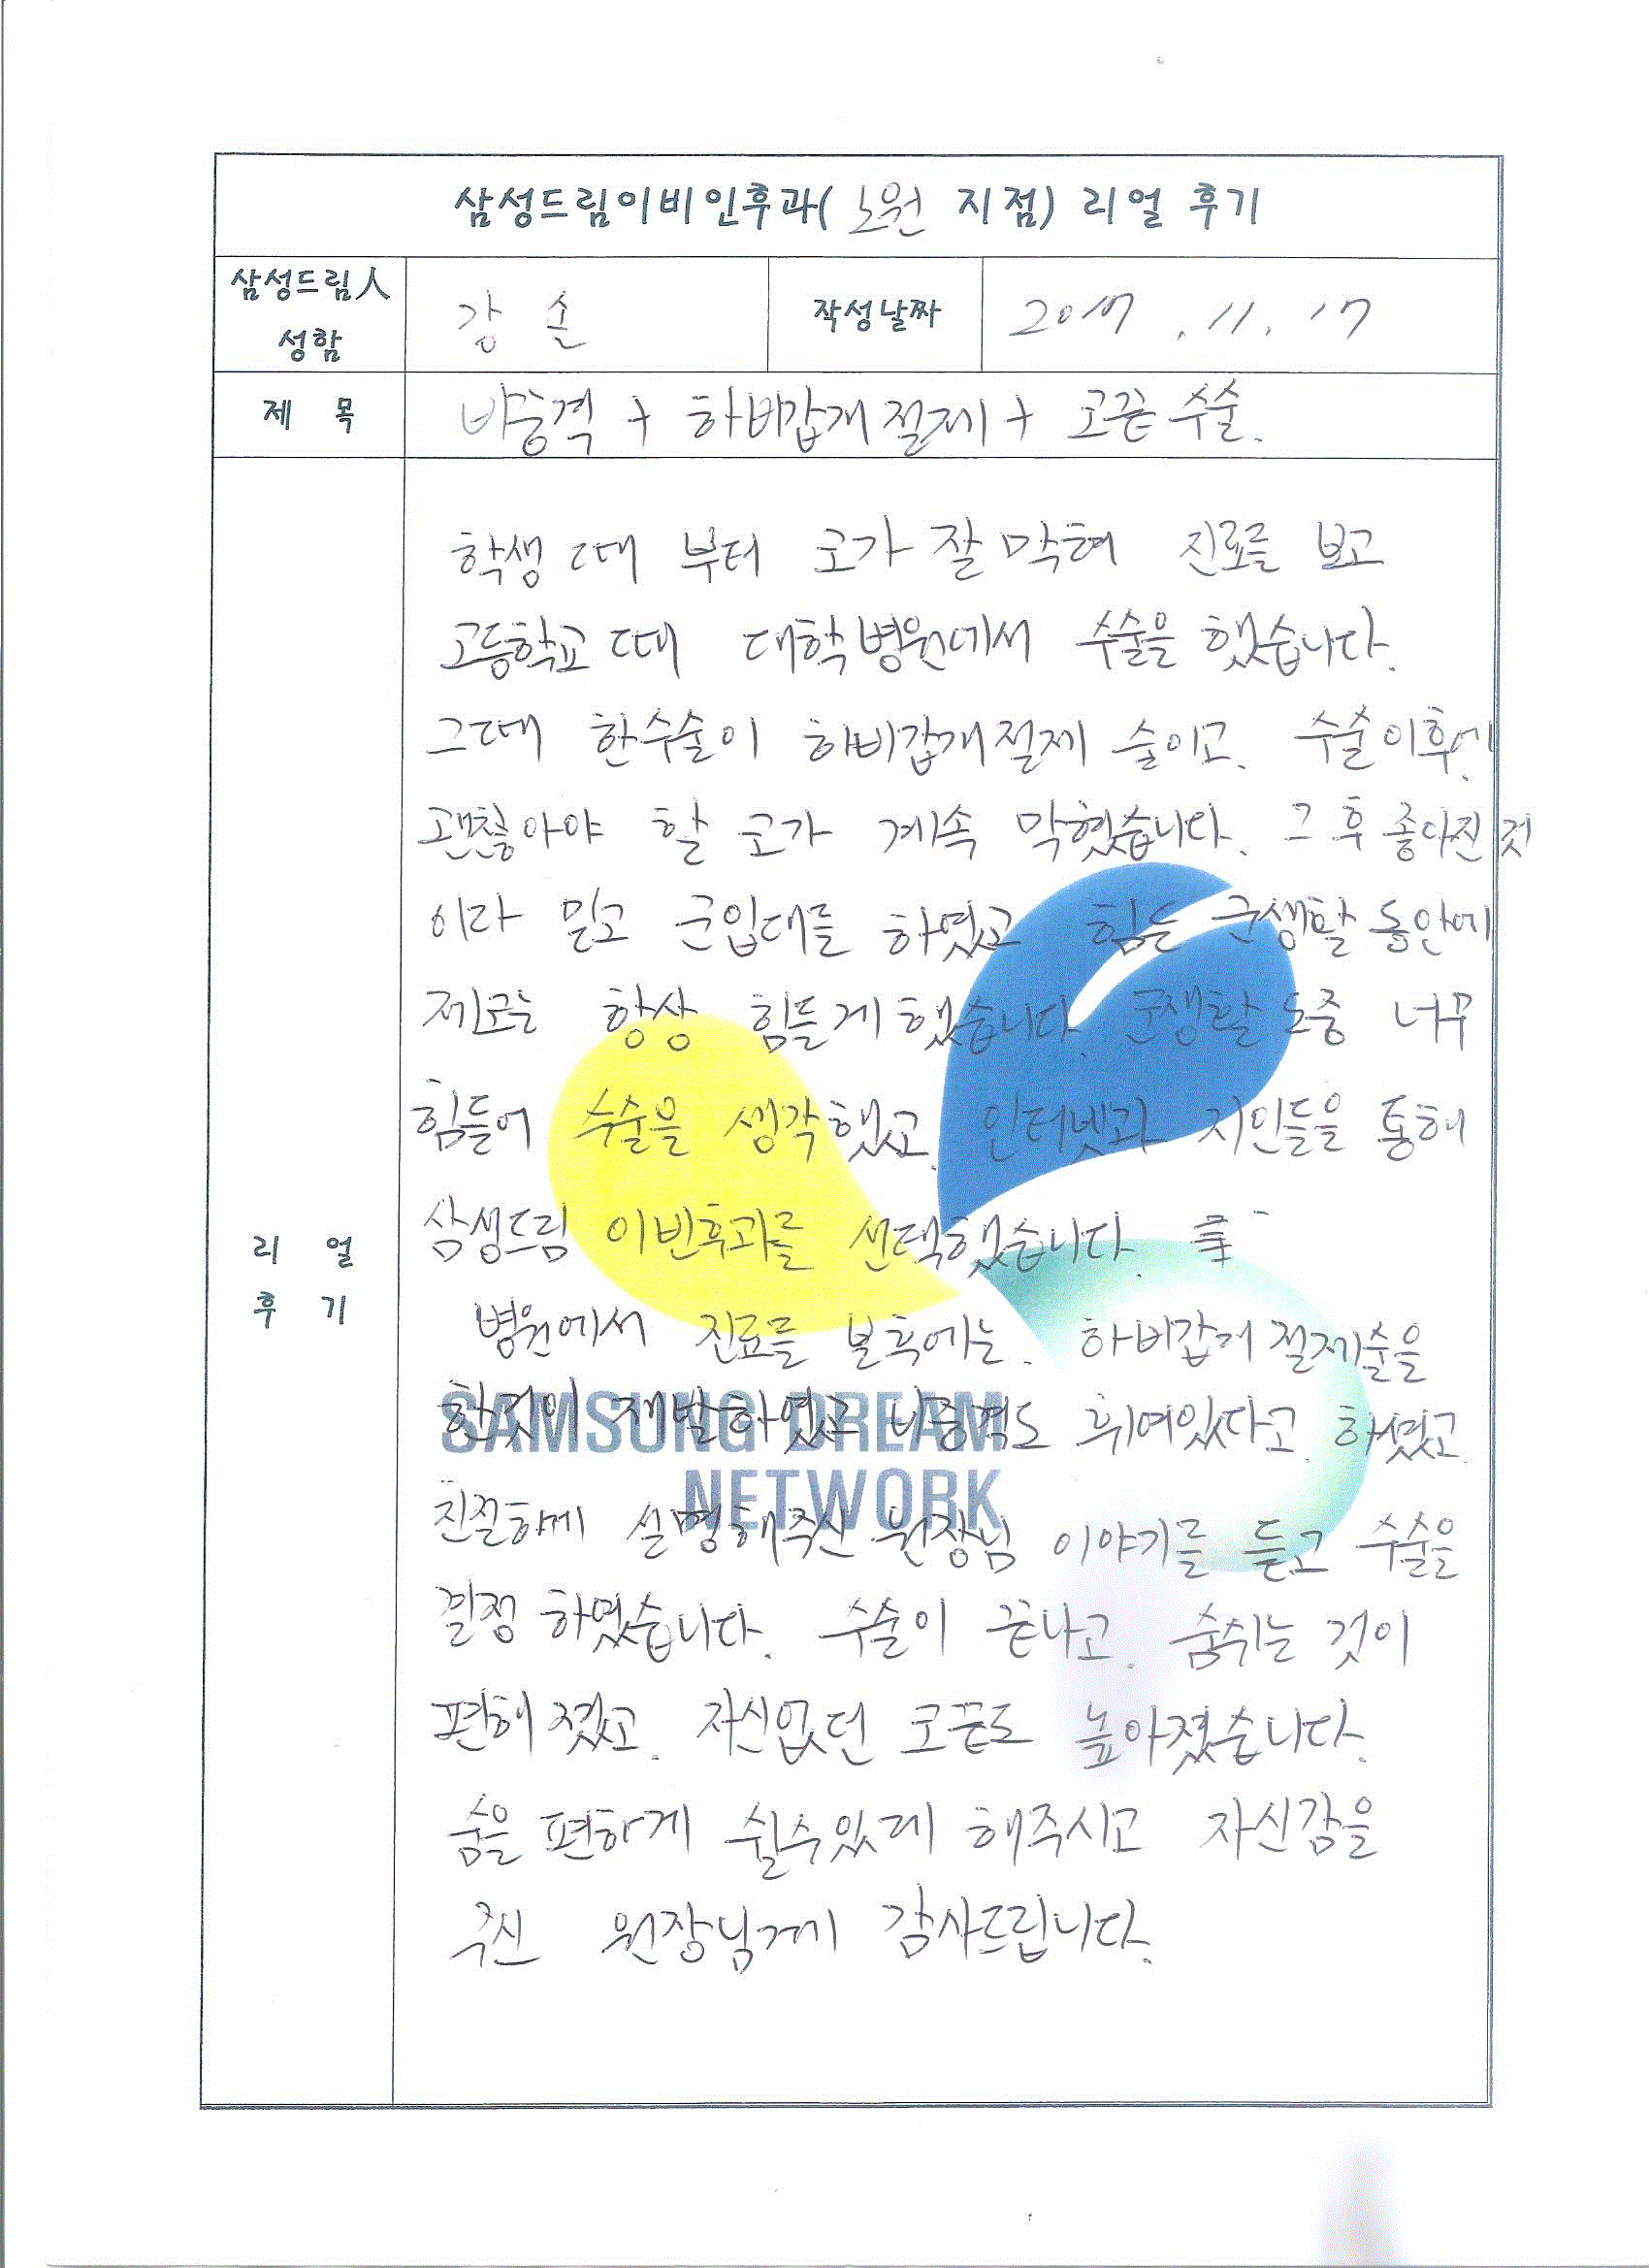 삼성드림이비인후과( 노원 지점) 리얼 후기
삼성드림人
성함
강 손
작성날짜
2017 . 11. 17
제 목
비중격 + 하비갑개절제 + 코끝수술.
리 얼
후 기
학생 때 부터 코가 잘 막혀 진료를 보고
고등학교 때 대학병원에서 수술을 했습니다.
그때 한수술이 하비갑개절제 술이고. 수술이후에
괜찮아야 할 코가 계속 막혔습니다. 그 후 좋아진 것
이라 믿고 군입대를 하였고 힘든 군생활 동안에
제코는 항상 힘들게 했습니다. 군생활 도중 너무
힘들어 수술을 생각했고. 인터넷과 지인들을 통해
삼성드림 이빈후과를 선택했습니다.
병원에서 진료를 본후에는. 하비갑개 절제술을
한것이 재발하였고 비중격도 휘어있다고 하셨고.
SAMSUNG DREAM
NETWORK
친절하게 설명해주신 원장님 이야기를 듣고 수술을
결정 하였습니다. 수술이 끝나고. 숨쉬는 것이
편해 졌고. 자신없던 코끝도 높아졌습니다.
숨을 편하게 쉴수있게 해주시고 자신감을
주신 원장님께 감사드립니다.